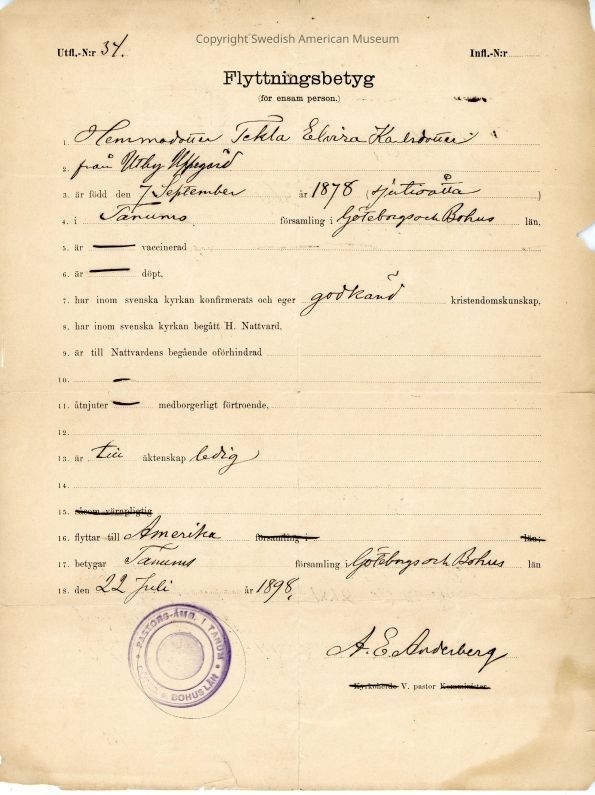 Copyright Swedish American Museum
Utfl.-N:r 34. Infl.-N:r
Flyttningsbetyg
(för ensam person.)
1. Hemmadotter Tekla Elvira Karlsdotter
2. från Utby Uppegård
3. är född den 7 September år 1878 (sjuttioåtta)
4. i Tanums församling i Göteborgs och Bohus län,
5. är — vaccinerad
6. är — döpt,
7. har inom svenska kyrkan konfirmerats och eger godkänd kristendomskunskap,
8. har inom svenska kyrkan begått H. Nattvard,
9. är till Nattvardens begående oförhindrad
10. —
11. åtnjuter — medborgerligt förtroende,
12.
13. är till äktenskap ledig
14.
15. såsom värnpligtig
16. flyttar till Amerika församling i län;
17. betygar Tanums församling i Göteborgs och Bohus län
18. den 22 Juli år 1898.
PASTORS-ÄMB. I TANUM
BOHUS LÄN
A. E. Anderberg
Kyrkoherde V. pastor Komminister